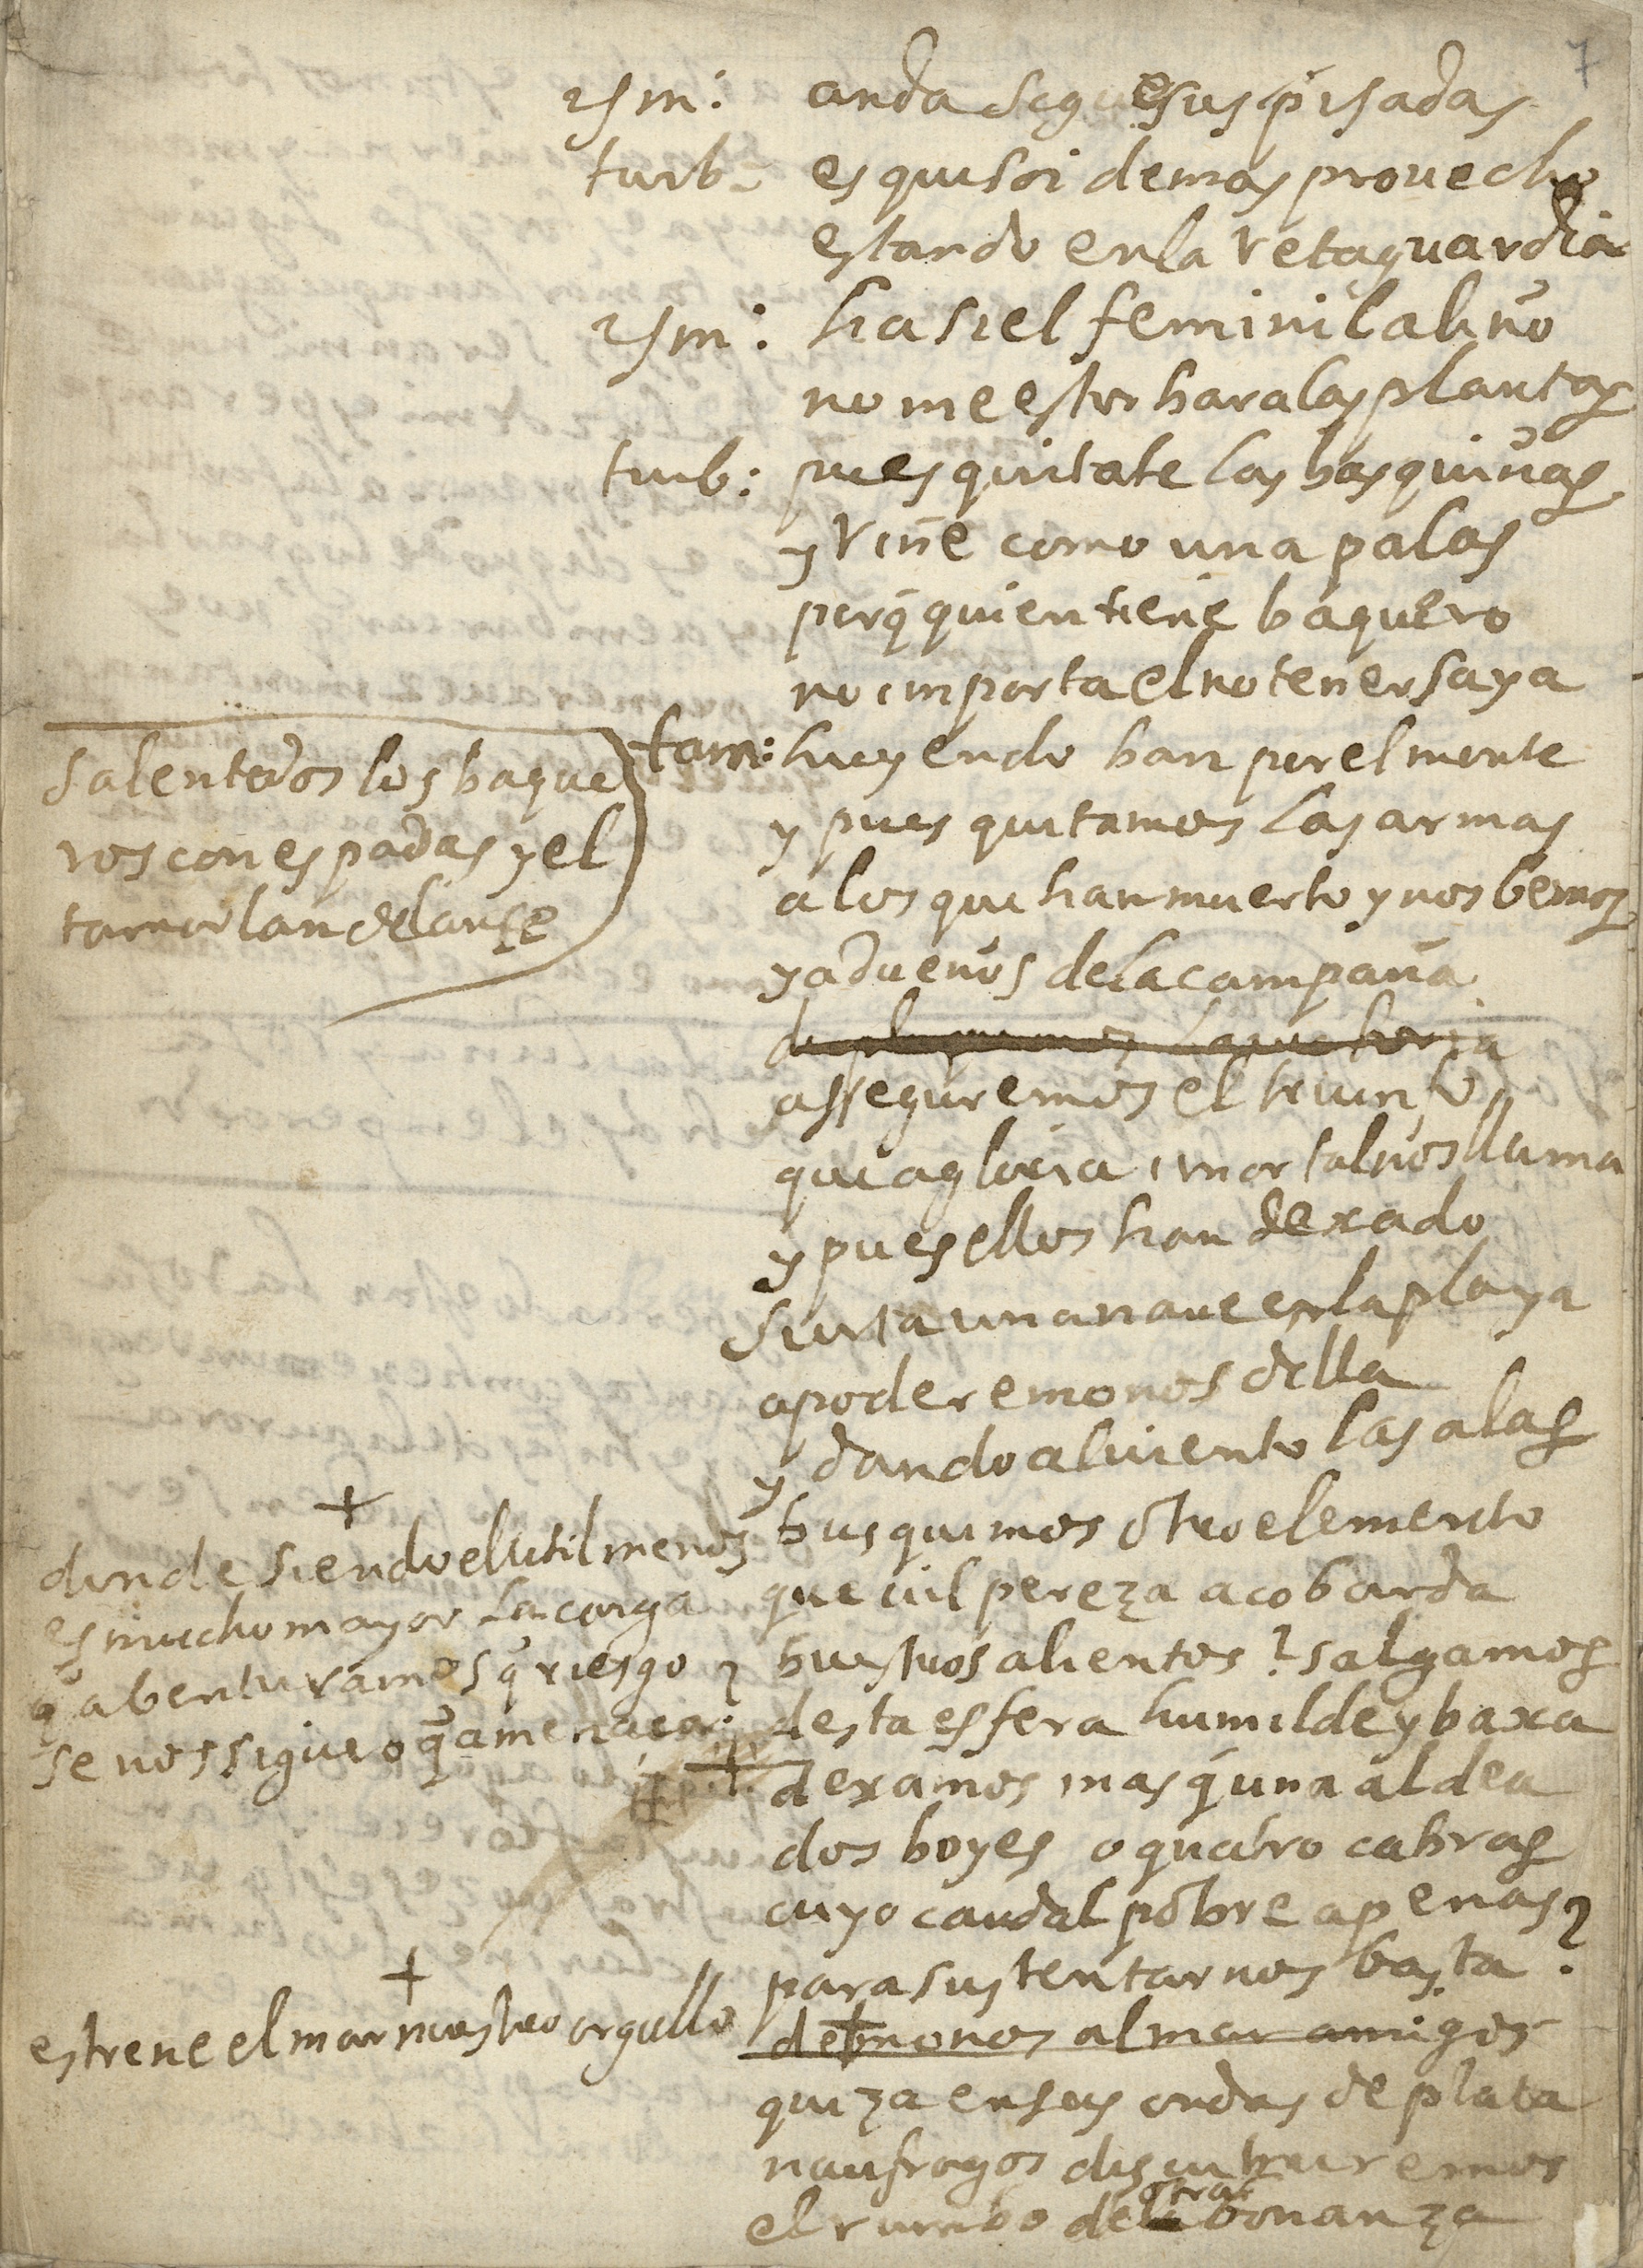 7
ism: anda sigue sus pisadas
turb. es que soi de mas prouecho
estando en la retaguardia
ism: ha si el feminil aliño
no me estorbara las plantas
turb: pues quitate las basquiñas
y riñe como una palas
porq̃ quien tiene baquero
no importa el no tener saya
salen todos los baque
ros con espadas y el
tamorlan delante
tam: huyendo ban por el monte
y pues quitamos las armas
a los que han muerto y nos bemos
ya dueños de la campaña
asseguremos el triunfo
que a gloria imortal nos llama
y pues ellos han dexado
surta una naue en la playa
apoderemonos della
y dando al uiento las alas
busquemos otro elemento
que uil pereza acobarda
buestros alientos? salgamos
desta esfera humilde y baxa
dexamos mas q̃ una aldea
dos boyes o quatro cabras
cuyo caudal pobre apenas
para sustentarnos basta?
+
donde siendo el util menos
es mucho mayor la carga
q̃ abenturamos q̃ riesgo
se nos sigue o q̃ amenaça?
demonos al mar amigos
+
estrene el mar nuestro orgullo
quiza en sus ondas de plata
naufragos discubriremos
el rumbo de otra bonanza